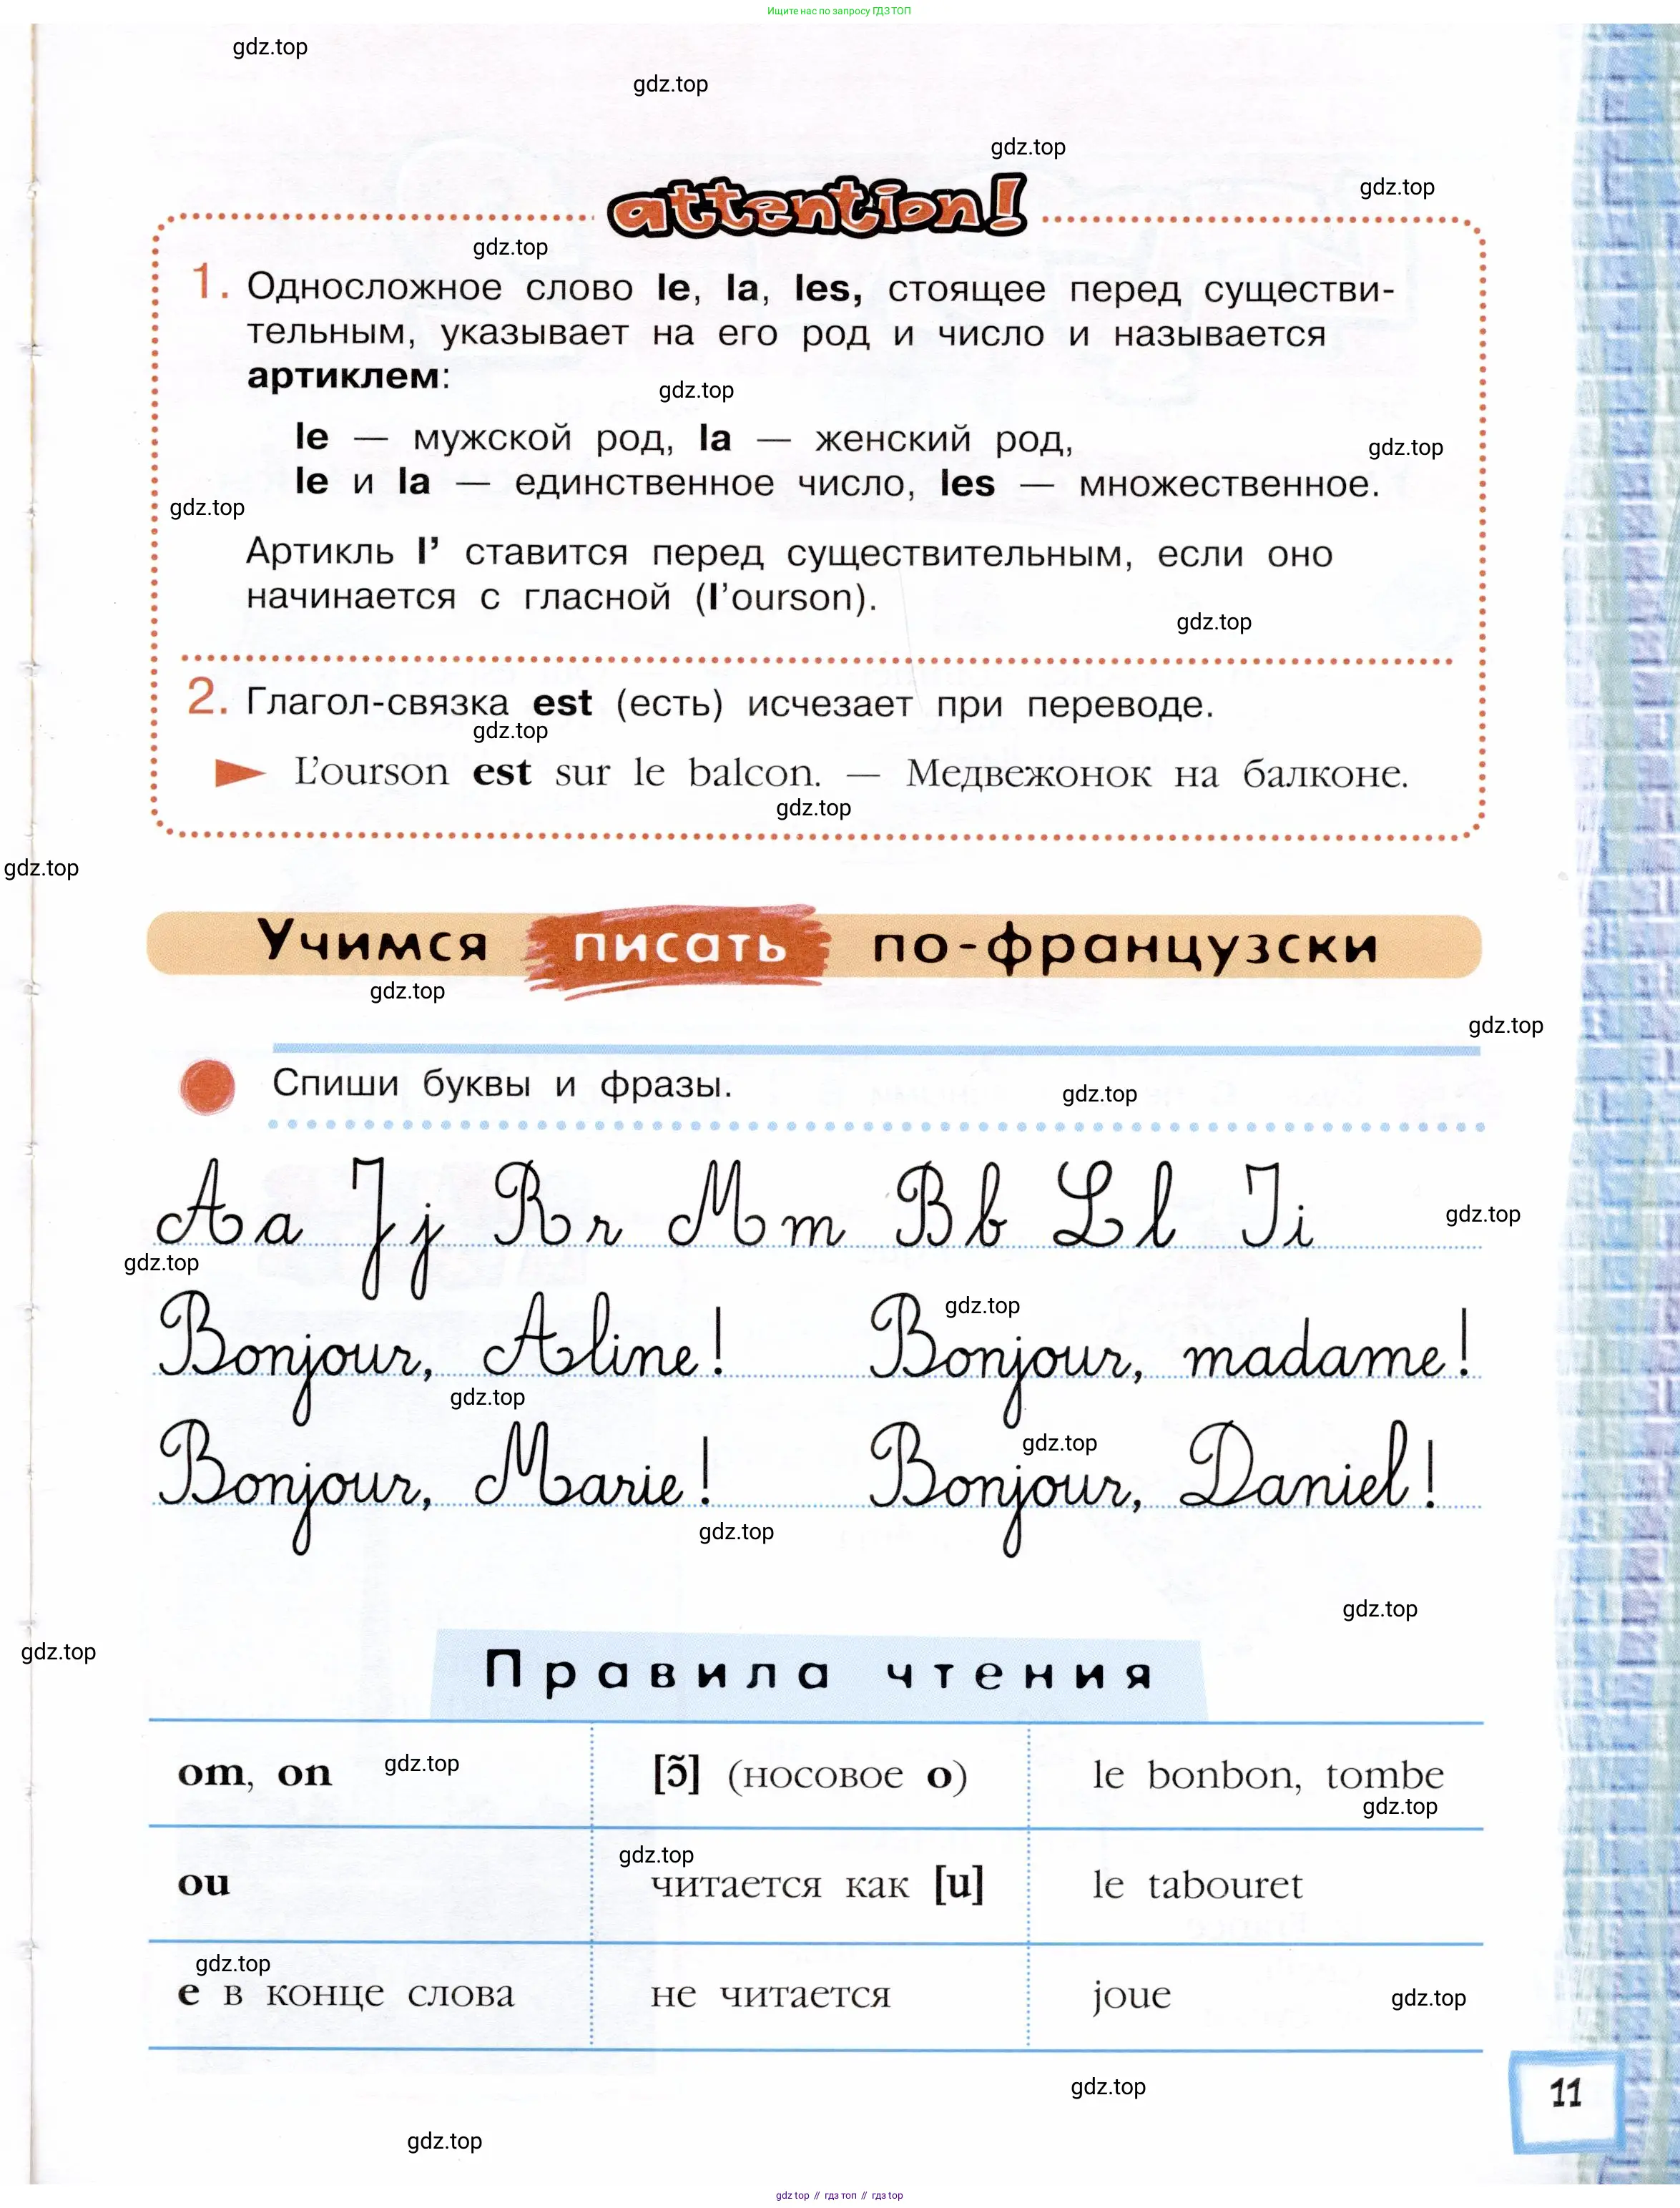 Ищите нас по запросу ГДЗ ТОП
gdz.top
gdz.top
gdz.top
gdz.top
attention!
gdz.top
1. Односложное слово le, la, les, стоящее перед существи-
тельным, указывает на его род и число и называется
артиклем:
gdz.top
le — мужской род, la — женский род,
gdz.top
le и la — единственное число, les — множественное.
gdz.top
Артикль l’ ставится перед существительным, если оно
начинается с гласной (l’ourson).
gdz.top
2. Глагол-связка est (есть) исчезает при переводе.
gdz.top
L’ourson est sur le balcon. — Медвежонок на балконе.
gdz.top
gdz.top
Учимся писать по-французски
gdz.top
gdz.top
Спиши буквы и фразы.
gdz.top
A a J j R r M m B b L l I i
gdz.top
gdz.top
gdz.top
Bonjour, Aline! Bonjour, madame!
gdz.top
gdz.top
Bonjour, Marie! Bonjour, Daniel!
gdz.top
gdz.top
gdz.top
Правила чтения
om, on [ɔ̃] (носовое о) le bonbon, tombe
gdz.top
gdz.top
gdz.top
ou читается как [u] le tabouret
gdz.top
e в конце слова не читается joue
gdz.top
gdz.top
11
gdz.top
gdz top // гдз топ // гдз top